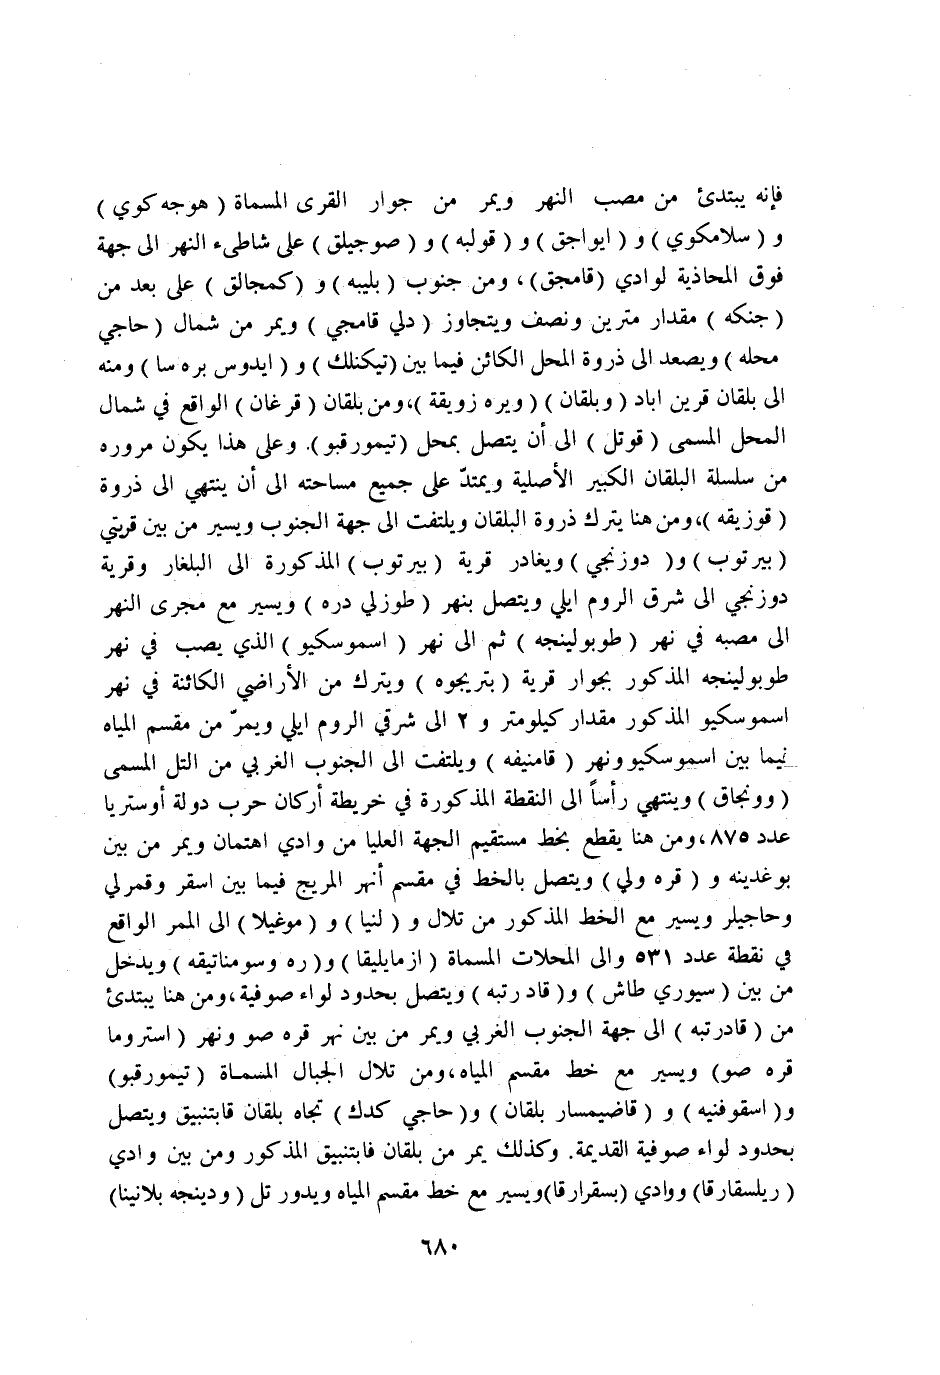 فإنه يبتدئ من مصب النهر ويمر من جوار القرى المسماة ( هوجه كوي )
و ( سلامكوي ) و ( ايواجق ) و ( قولبه ) و ( صوجيلق ) على شاطىء النهر الى جهة
فوق المحاذية لوادي (قامجق)، ومن جنوب ( بليبه ) و ( كمجالق ) على بعد من
( جنكه ) مقدار مترين ونصف ويتجاوز ( دلي قامجي ) ويمر من شمال ( حاجي
محله ) ويصعد الى ذروة المحل الكائن فيما بين (تيكنلك ) و ( ايدوس بره سا ) ومنه
الى بلقان قرين اباد ( وبلقان ) ( ويره زويقة )، ومن بلقان ( قرغان ) الواقع في شمال
المحل المسمى ( قوتل ) الى أن يتصل بمحل (تيمورقبو). وعلى هذا يكون مروره
من سلسلة البلقان الكبير الأصلية ويمتدّ على جميع مساحته الى أن ينتهي الى ذروة
( قوزيقه )، ومن هنا يترك ذروة البلقان ويلتفت الى جهة الجنوب ويسير من بين قريتي
( بيرتوب ) و( دوزنجي ) ويغادر قرية ( بيرتوب ) المذكورة الى البلغار وقرية
دوزنجي الى شرق الروم ايلي ويتصل بنهر ( طوزلي دره ) ويسير مع مجرى النهر
الى مصبه في نهر ( طوبولينجه ) ثم الى نهر ( اسموسكيو ) الذي يصب في نهر
طوبولينجه المذكور بجوار قرية ( بتريجوه ) ويترك من الأراضي الكائنة في نهر
اسموسكيو المذكور مقدار كيلومتر و ٢ الى شرقي الروم ايلي ويمرّ من مقسم المياه
فيما بين اسموسكيو ونهر ( قامنيفه ) ويلتفت الى الجنوب الغربي من التل المسمى
( وونجاق ) وينتهي رأساً الى النقطة المذكورة في خريطة أركان حرب دولة أوستريا
عدد ٨٧٥، ومن هنا يقطع بخط مستقيم الجهة العليا من وادي اهتمان ويمر من بين
بوغدينه و ( قره ولي ) ويتصل بالخط في مقسم أنهر المريج فيما بين اسقر وقمرلي
وحاجيلر ويسير مع الخط المذكور من تلال و ( لنيا ) و ( موغيلا ) الى الممر الواقع
في نقطة عدد ٥٣١ والى المحلات المسماة ( ازمايليقا ) و( ره وسومناتيقه ) ويدخل
من بين ( سيوري طاش ) و( قادرتبه ) ويتصل بحدود لواء صوفية، ومن هنا يبتدئ
من ( قادرتبه ) الى جهة الجنوب الغربي ويمر من بين نهر قره صو ونهر ( استروما
قره صو) ويسير مع خط مقسم المياه، ومن تلال الجبال المسماة ( تيمورقبو)
و( اسقوفنيه ) و ( قاضيمسار بلقان ) و( حاجي كدك ) تجاه بلقان قابتنبيق ويتصل
بحدود لواء صوفية القديمة. وكذلك يمر من بلقان فابتنبيق المذكور ومن بين وادي
( ريلسقارقا) ووادي (بسقرارقا)ويسير مع خط مقسم المياه ويدور تل ( ودينجه بلانينا)
٦٨٠